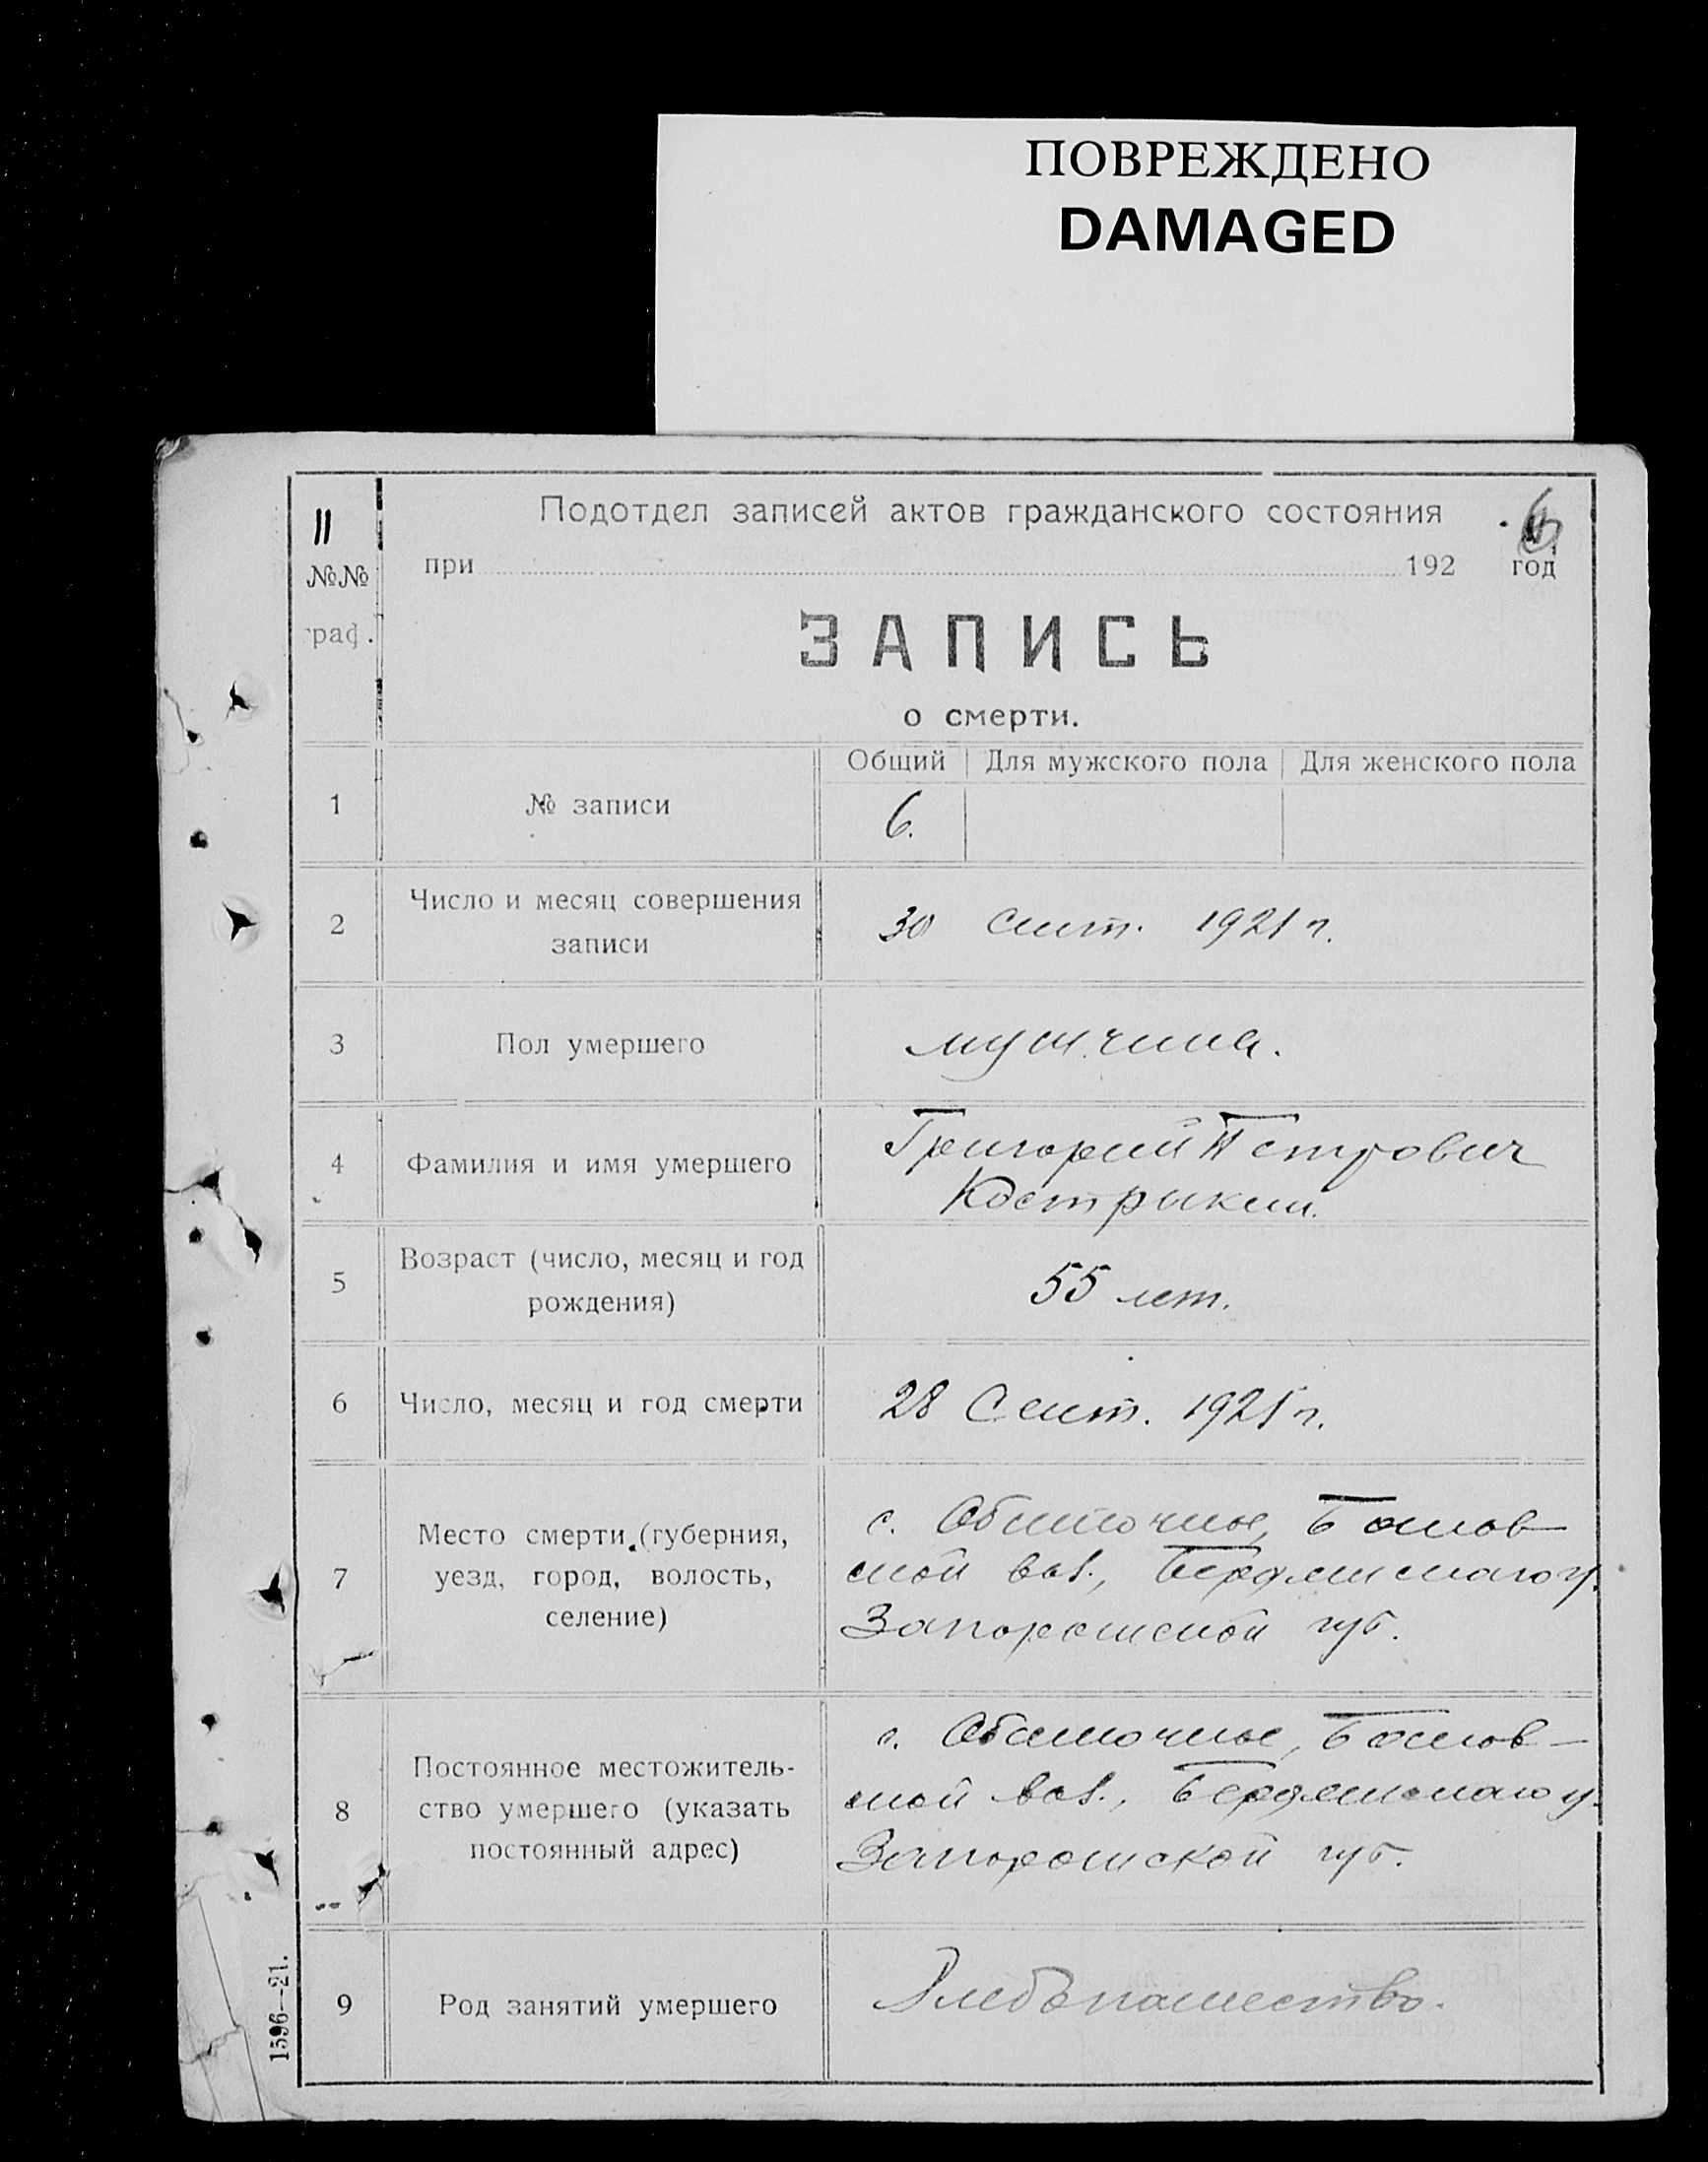 ПОВРЕЖДЕНО
DAMAGED
II
№№
граф.
Подотдел записей актов гражданского состояния
при 192 год
ЗАПИСЬ
о смерти.
Общий Для мужского пола Для женского пола
1 № записи 6.
2 Число и месяц совершения записи
30 сент. 1921 г.
3 Пол умершего мужчина.
4 Фамилия и имя умершего
Григорий Петрович
Кострыкин.
5 Возраст (число, месяц и год
рождения)
55 лет.
6 Число, месяц и год смерти 28 Сент. 1921 г.
7 Место смерти (губерния,
уезд, город, волость,
селение)
с. Обиточное,
ской вол., Бердянскаго у.
Запорожской губ.
8 Постоянное местожитель-
ство умершего (указать
постоянный адрес)
с. Обиточное,
ской вол., Бердянскаго у.
Запорожской губ.
9 Род занятий умершего Хлебопашество.
1596—21.